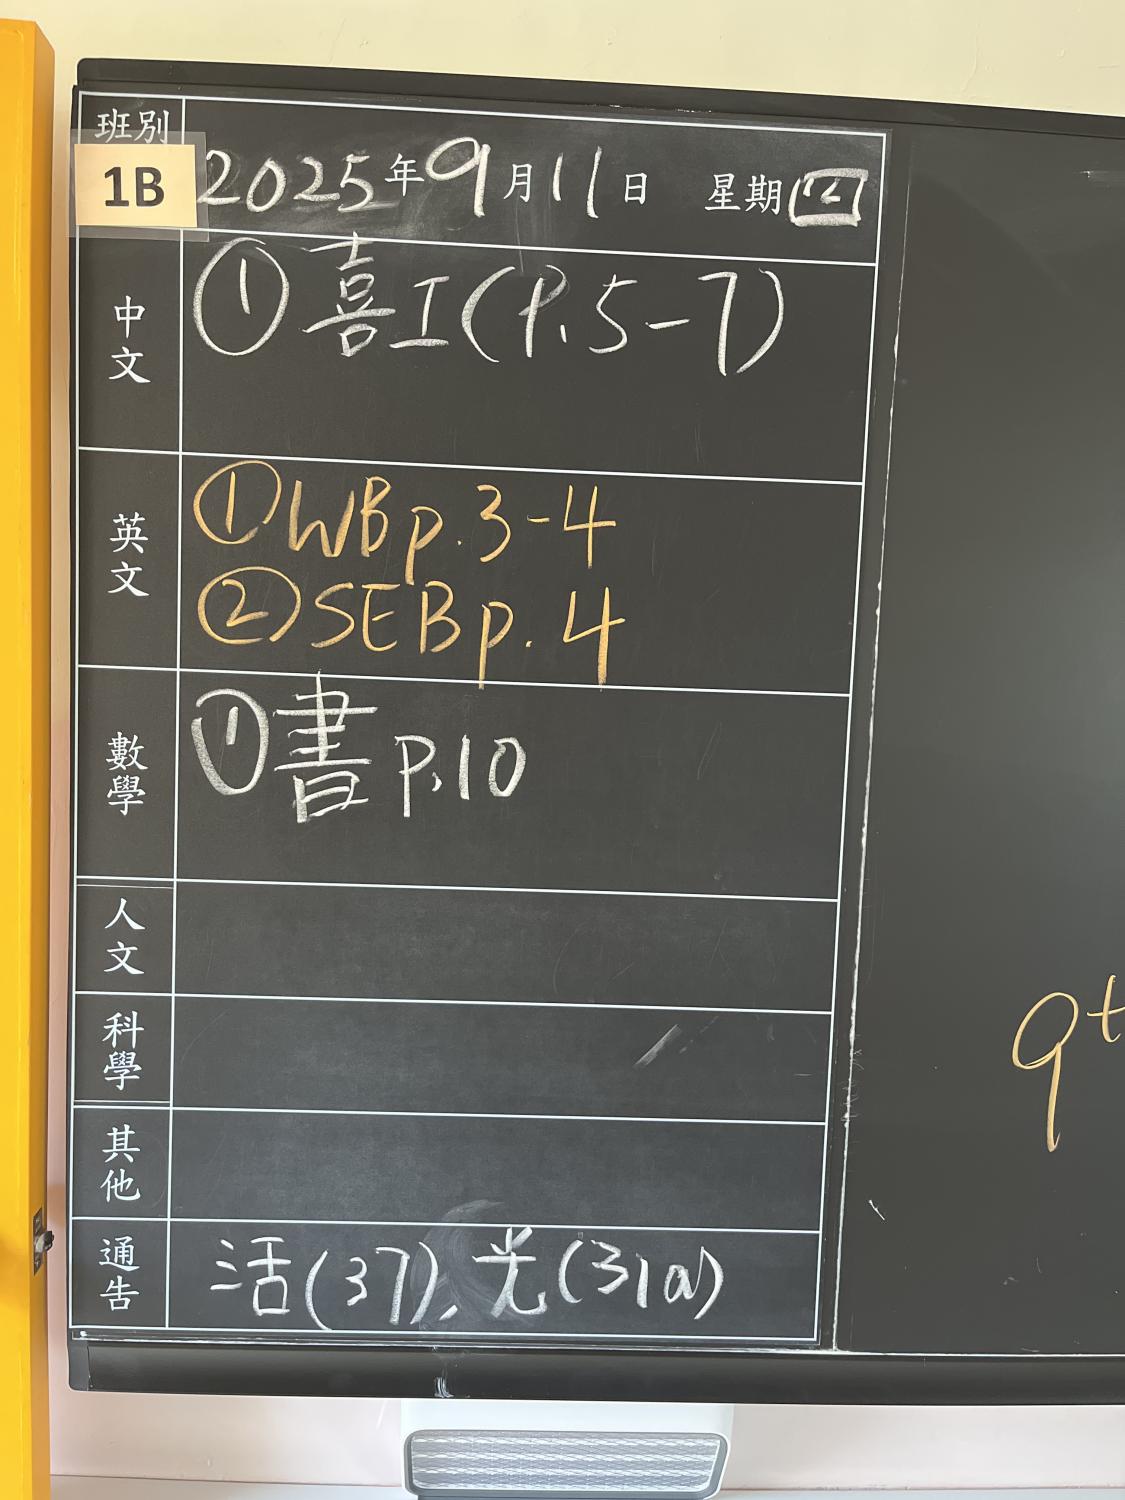 班別
1B
2025年9月11日 星期四
中文
① 喜工(P.5-7)
英文
① WB p.3-4
② SEB p.4
數學
① 書 p.10
人文
科學
其他
通告
活(37), 光(31a)
9t